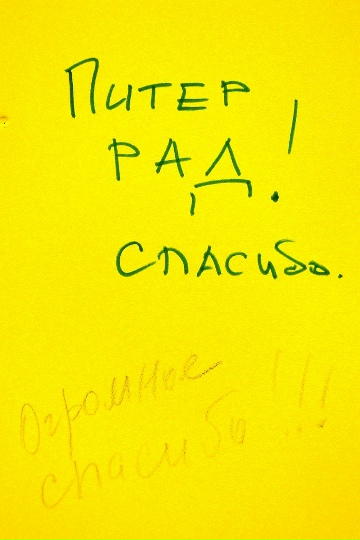 Питер
РАД!
Спасибо.
Огромное
спасибо!!!